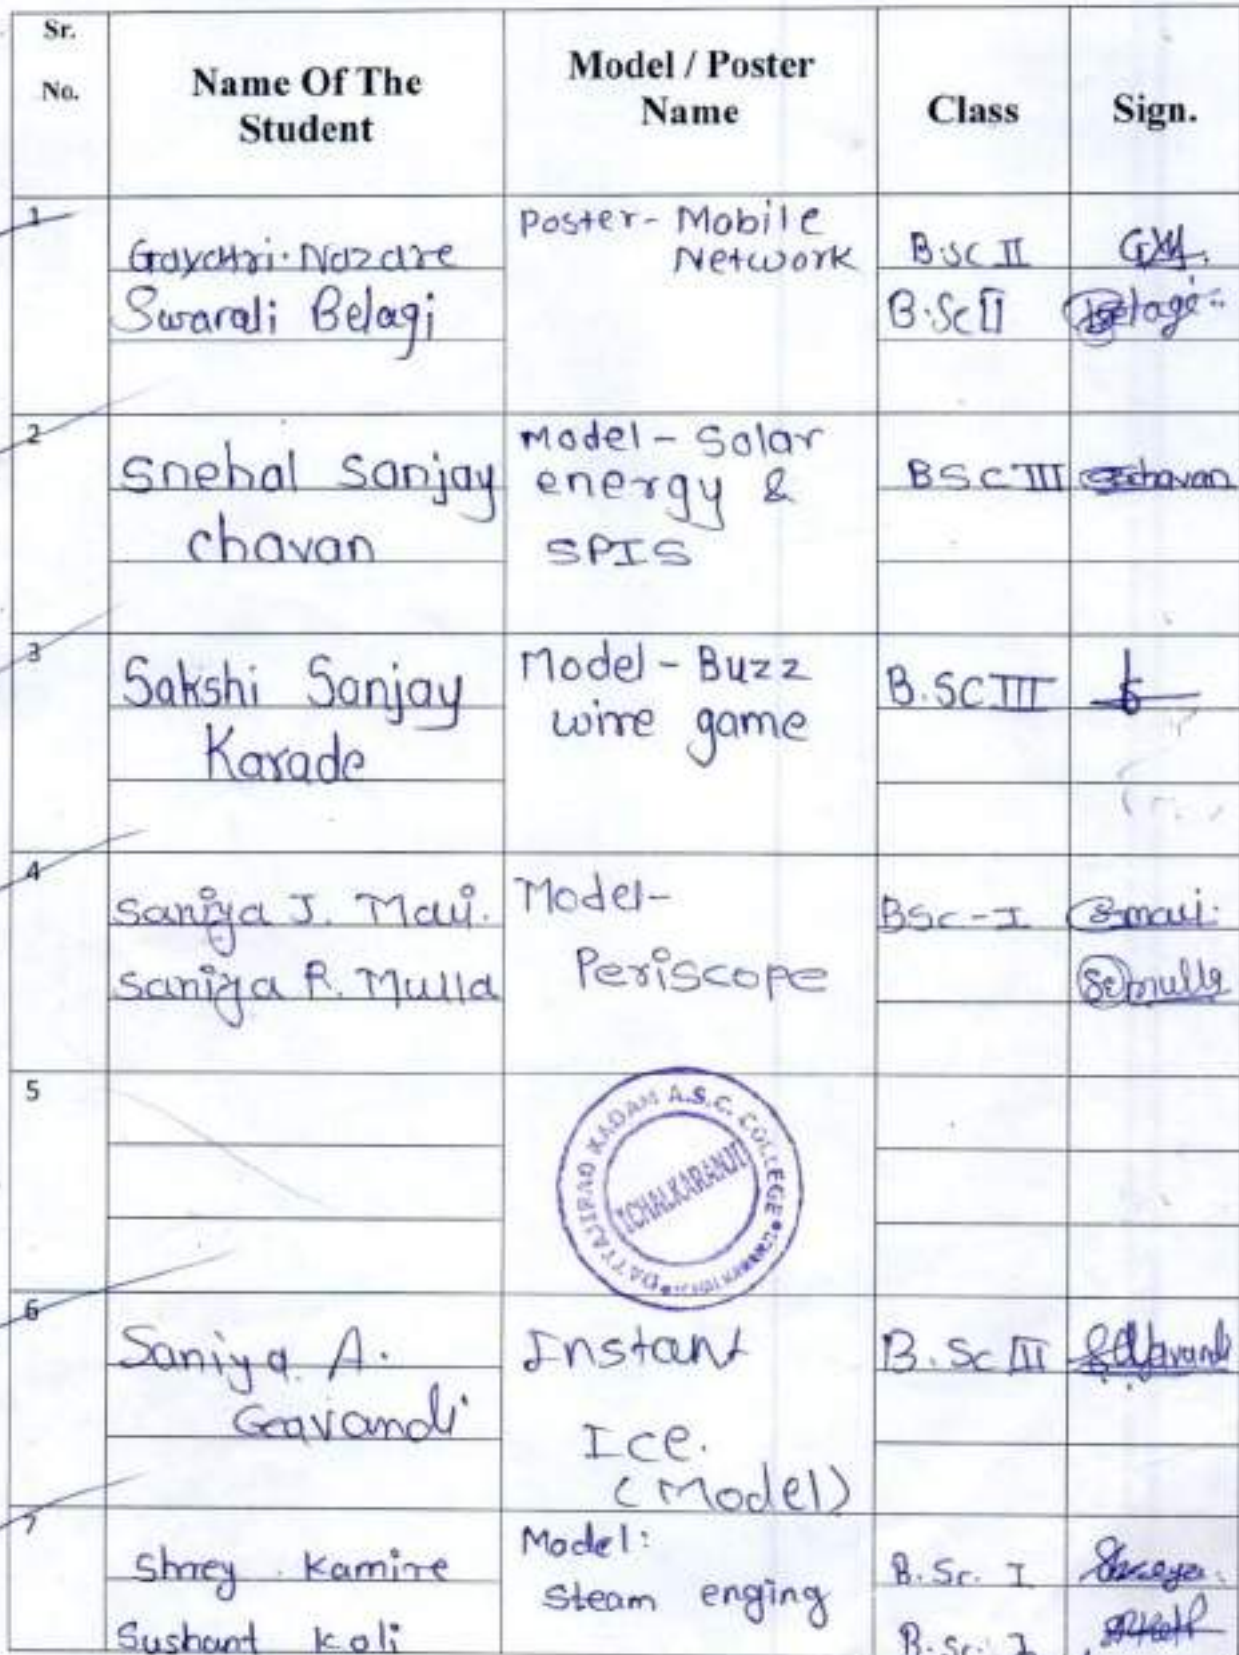 Sr.
No.
Name Of The
Student
Model / Poster
Name
Class
Sign.
1
Gayatri. Nazare
Swarali Belagi
Poster - Mobile
Network
B.sc II
B.Sc II
Belagi
2
Snehal Sanjay
chavan
Model - Solar
energy &
SPIS
BSC III
chavan
3
Sakshi Sanjay
Karade
Model - Buzz
wire game
B.SC III
4
Saniya J.
Saniya R. Mulla
Model-
Periscope
BSc - I
mulla
5
DATTAJIRAO KADAM A.S.C. COLLEGE
ICHALKARANJI
6
Saniya A.
Gavandi
Instant
Ice.
(Model)
B. Sc III
7
Shrey Kamire
Sushant Koli
Model:
Steam enging
B. Sc. I
B. Sc. I